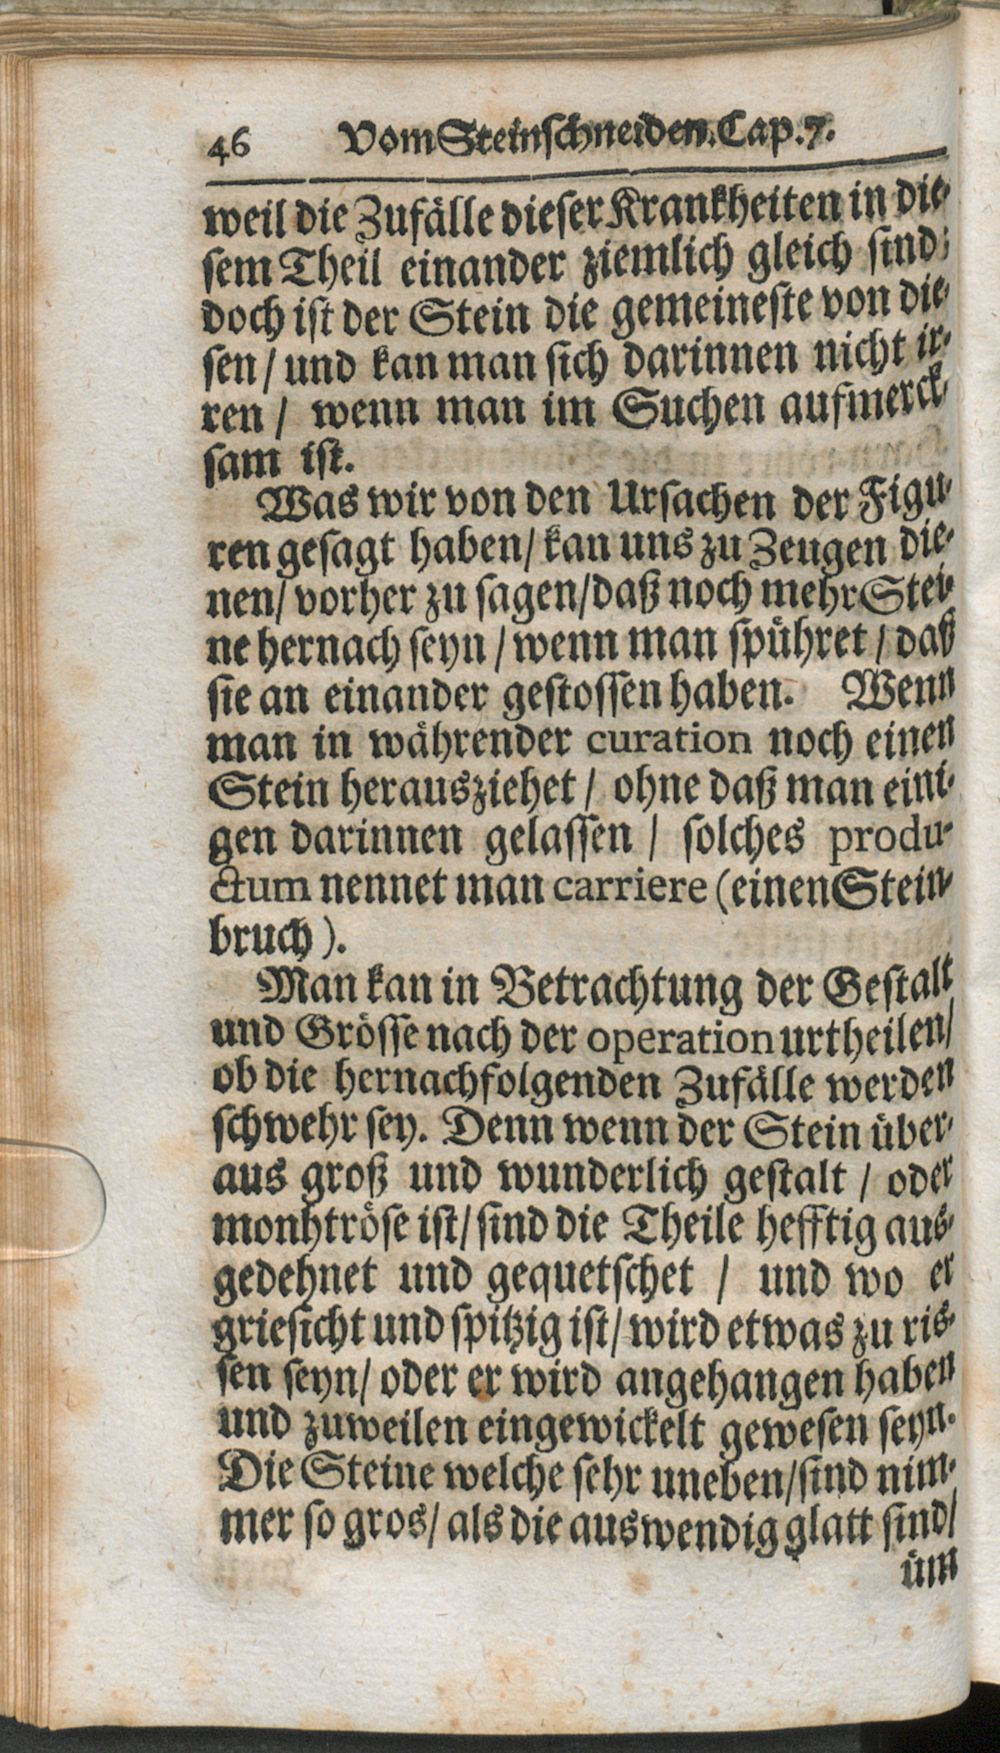 46 Vom Steinschneiden. Cap. 7.
weil die Zufälle dieser Krankheiten in die-
sem Theil einander ziemlich gleich sind;
doch ist der Stein die gemeineste von die-
sen / und kan man sich darinnen nicht ir-
ren / wenn man im Suchen aufmerck-
sam ist.
Was wir von den Ursachen der Figu-
ren gesagt haben / kan uns zu Zeugen die-
nen / vorher zu sagen / daß noch mehr Stei-
ne hernach seyn / wenn man spühret / daß
sie an einander gestossen haben. Wenn
man in währender curation noch einen
Stein herausziehet / ohne daß man eini-
gen darinnen gelassen / solches produ-
ctum nennet man carriere (einen Stein-
bruch).
Man kan in Betrachtung der Gestalt
und Grösse nach der operation urtheilen /
ob die hernachfolgenden Zufälle werden
schwehr sey. Denn wenn der Stein über-
aus groß und wunderlich gestalt / oder
monhtröse ist / sind die Theile hefftig aus-
gedehnet und gequetschet / und wo er
griesicht und spitzig ist / wird etwas zu ris-
sen seyn / oder er wird angehangen haben
und zuweilen eingewickelt gewesen seyn.
Die Steine welche sehr uneben / sind nim-
mer so gros / als die auswendig glatt sind /
üm